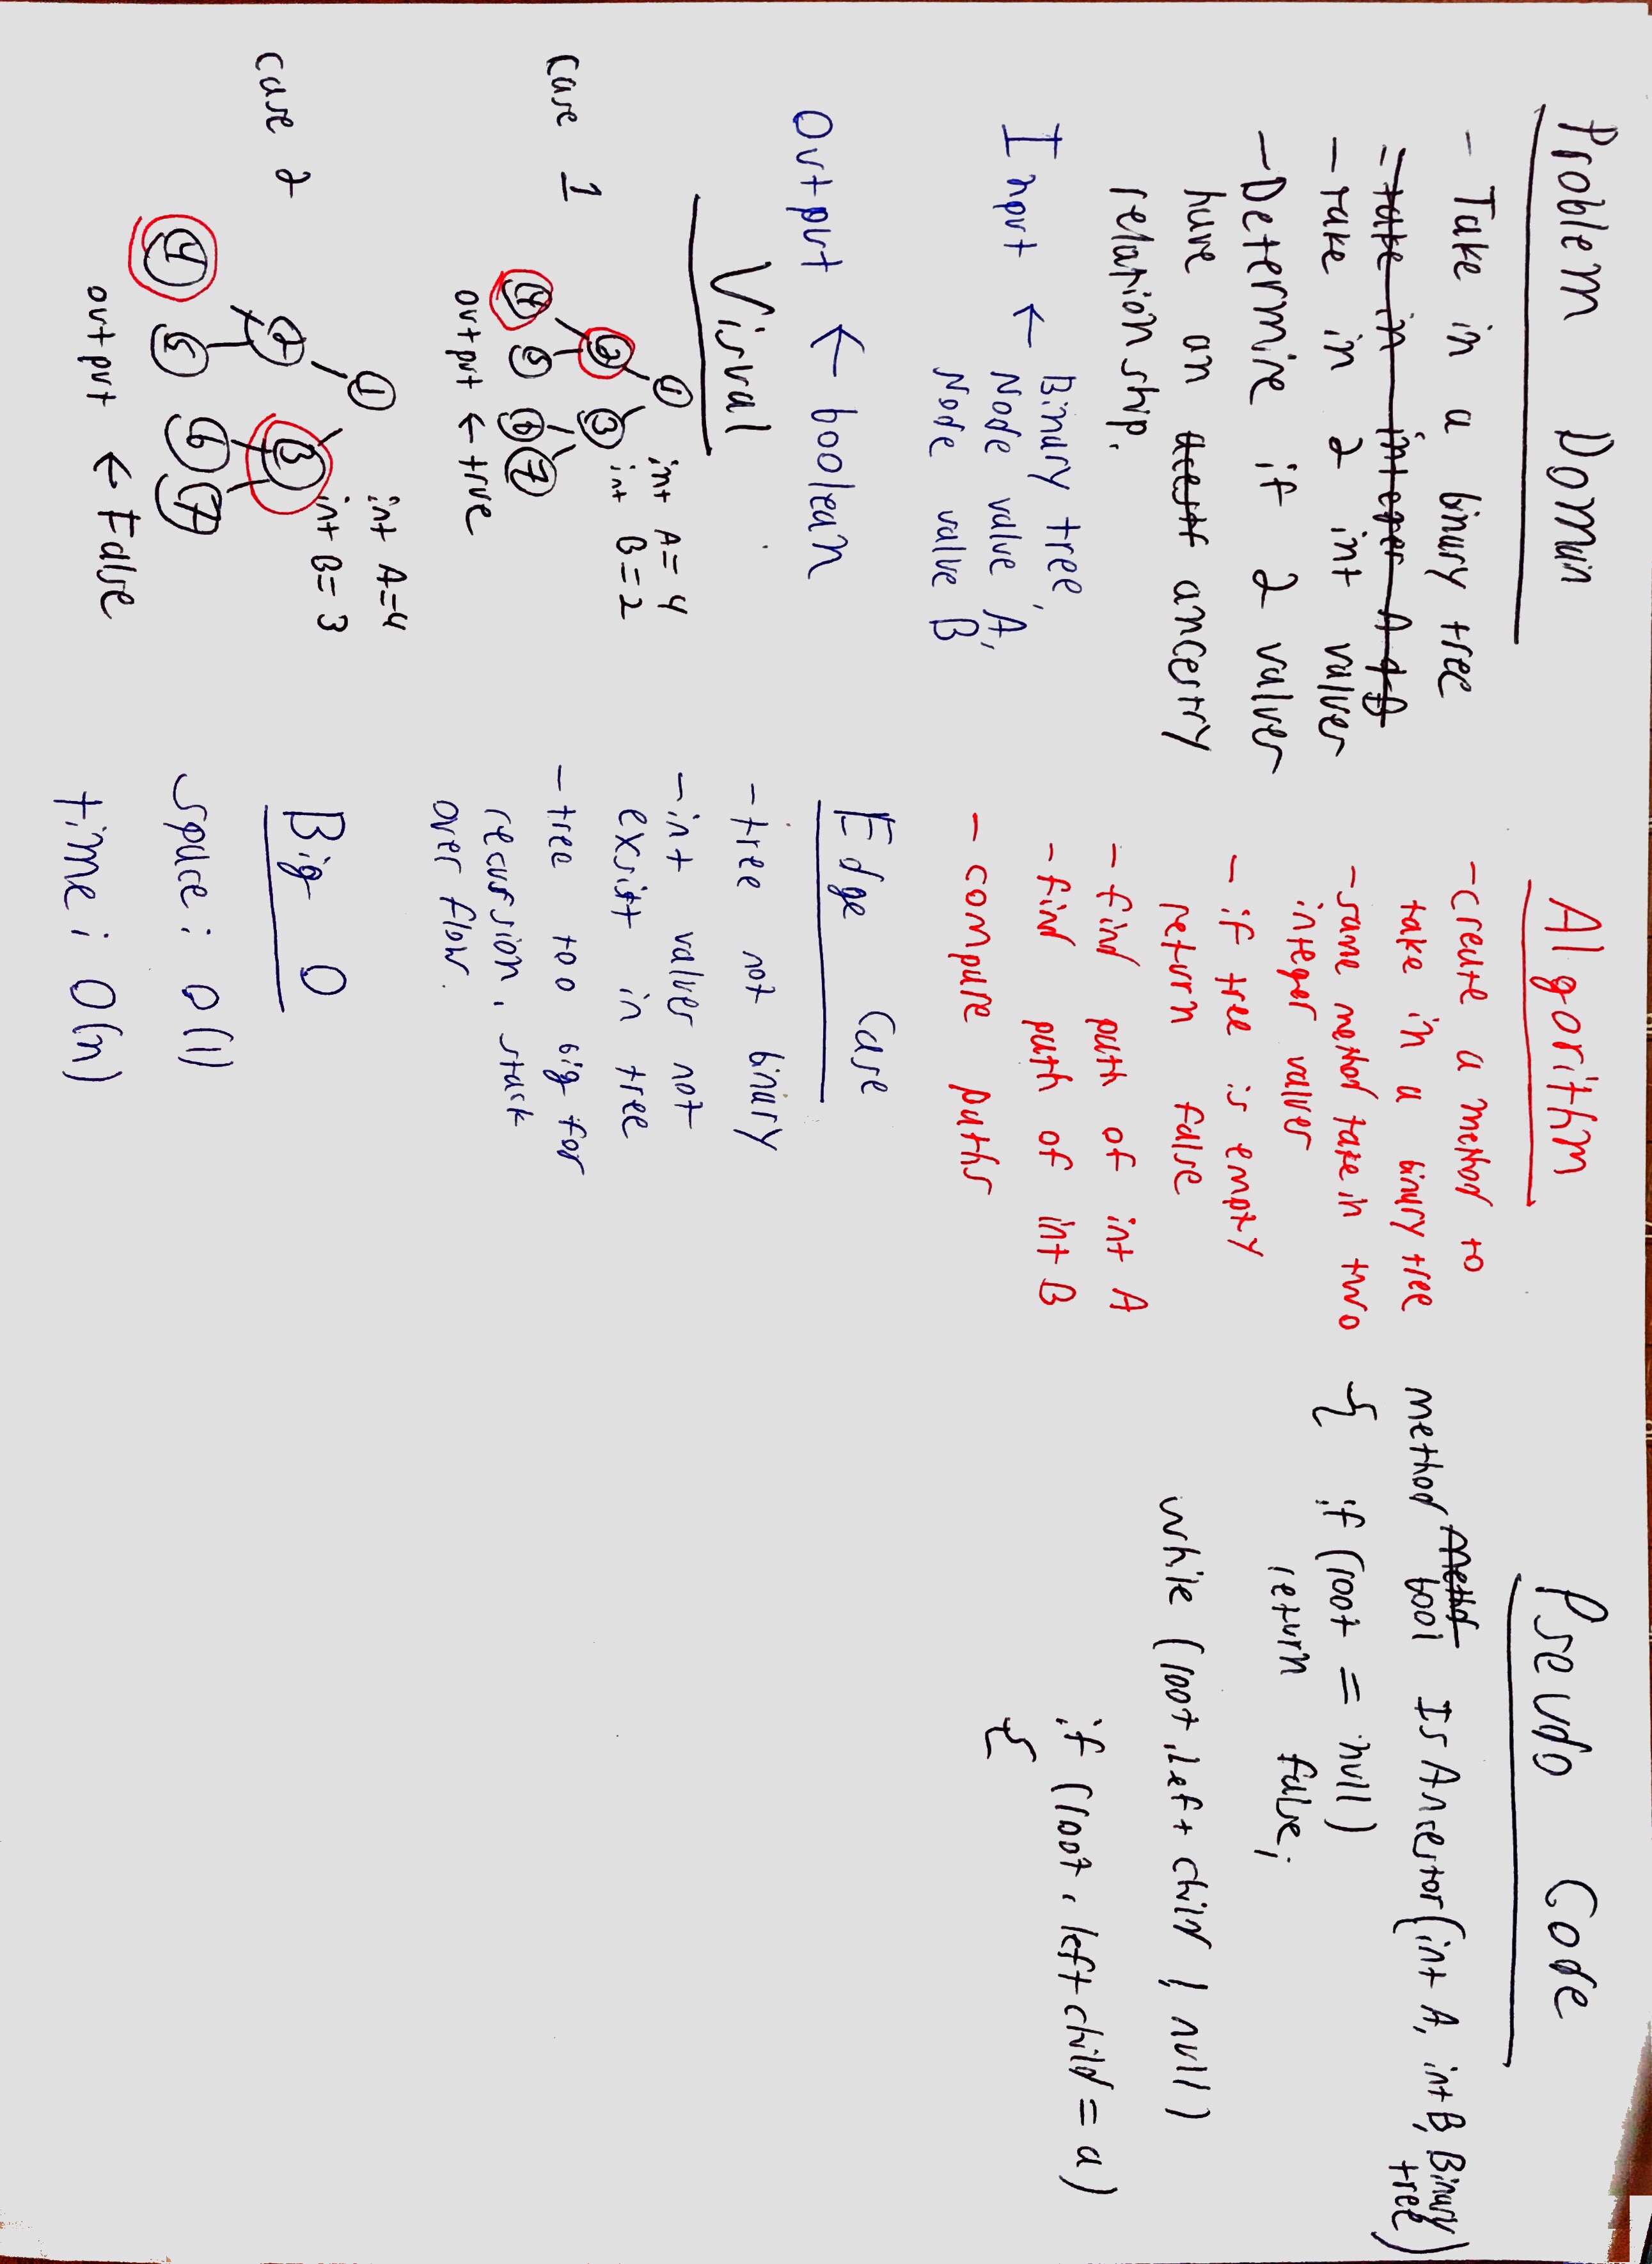 Problem Domain
- Take in a binary tree
- take in integer A & B
- take in 2 int values
- Determine if 2 values
have an ancestry
relationship.
Input ← Binary tree,
Node value A,
Node value B
Output ← boolean
Visual
case 1
1
int A = 4
int B = 2
2 3
4 5 6 7
output ← true
case 2
1
int A=4
int B= 3
2 3
4 5 6 7
output ← False
Algorithm
- create a method to
take in a binary tree
- same method take in two
integer values
- if tree is empty
return false
- find path of int A
- find path of int B
- compare paths
Edge Case
- tree not binary
- int values not
exsist in tree
- tree too big for
recursion. stack
over flow.
Big O
space: O(1)
time: O(n)
Pseudo Code
method method bool IsAncestor(int A, int B, Binary
tree)
{ if (root = null)
return false;
while (root.left child ! null)
if (root.left child = a)
{